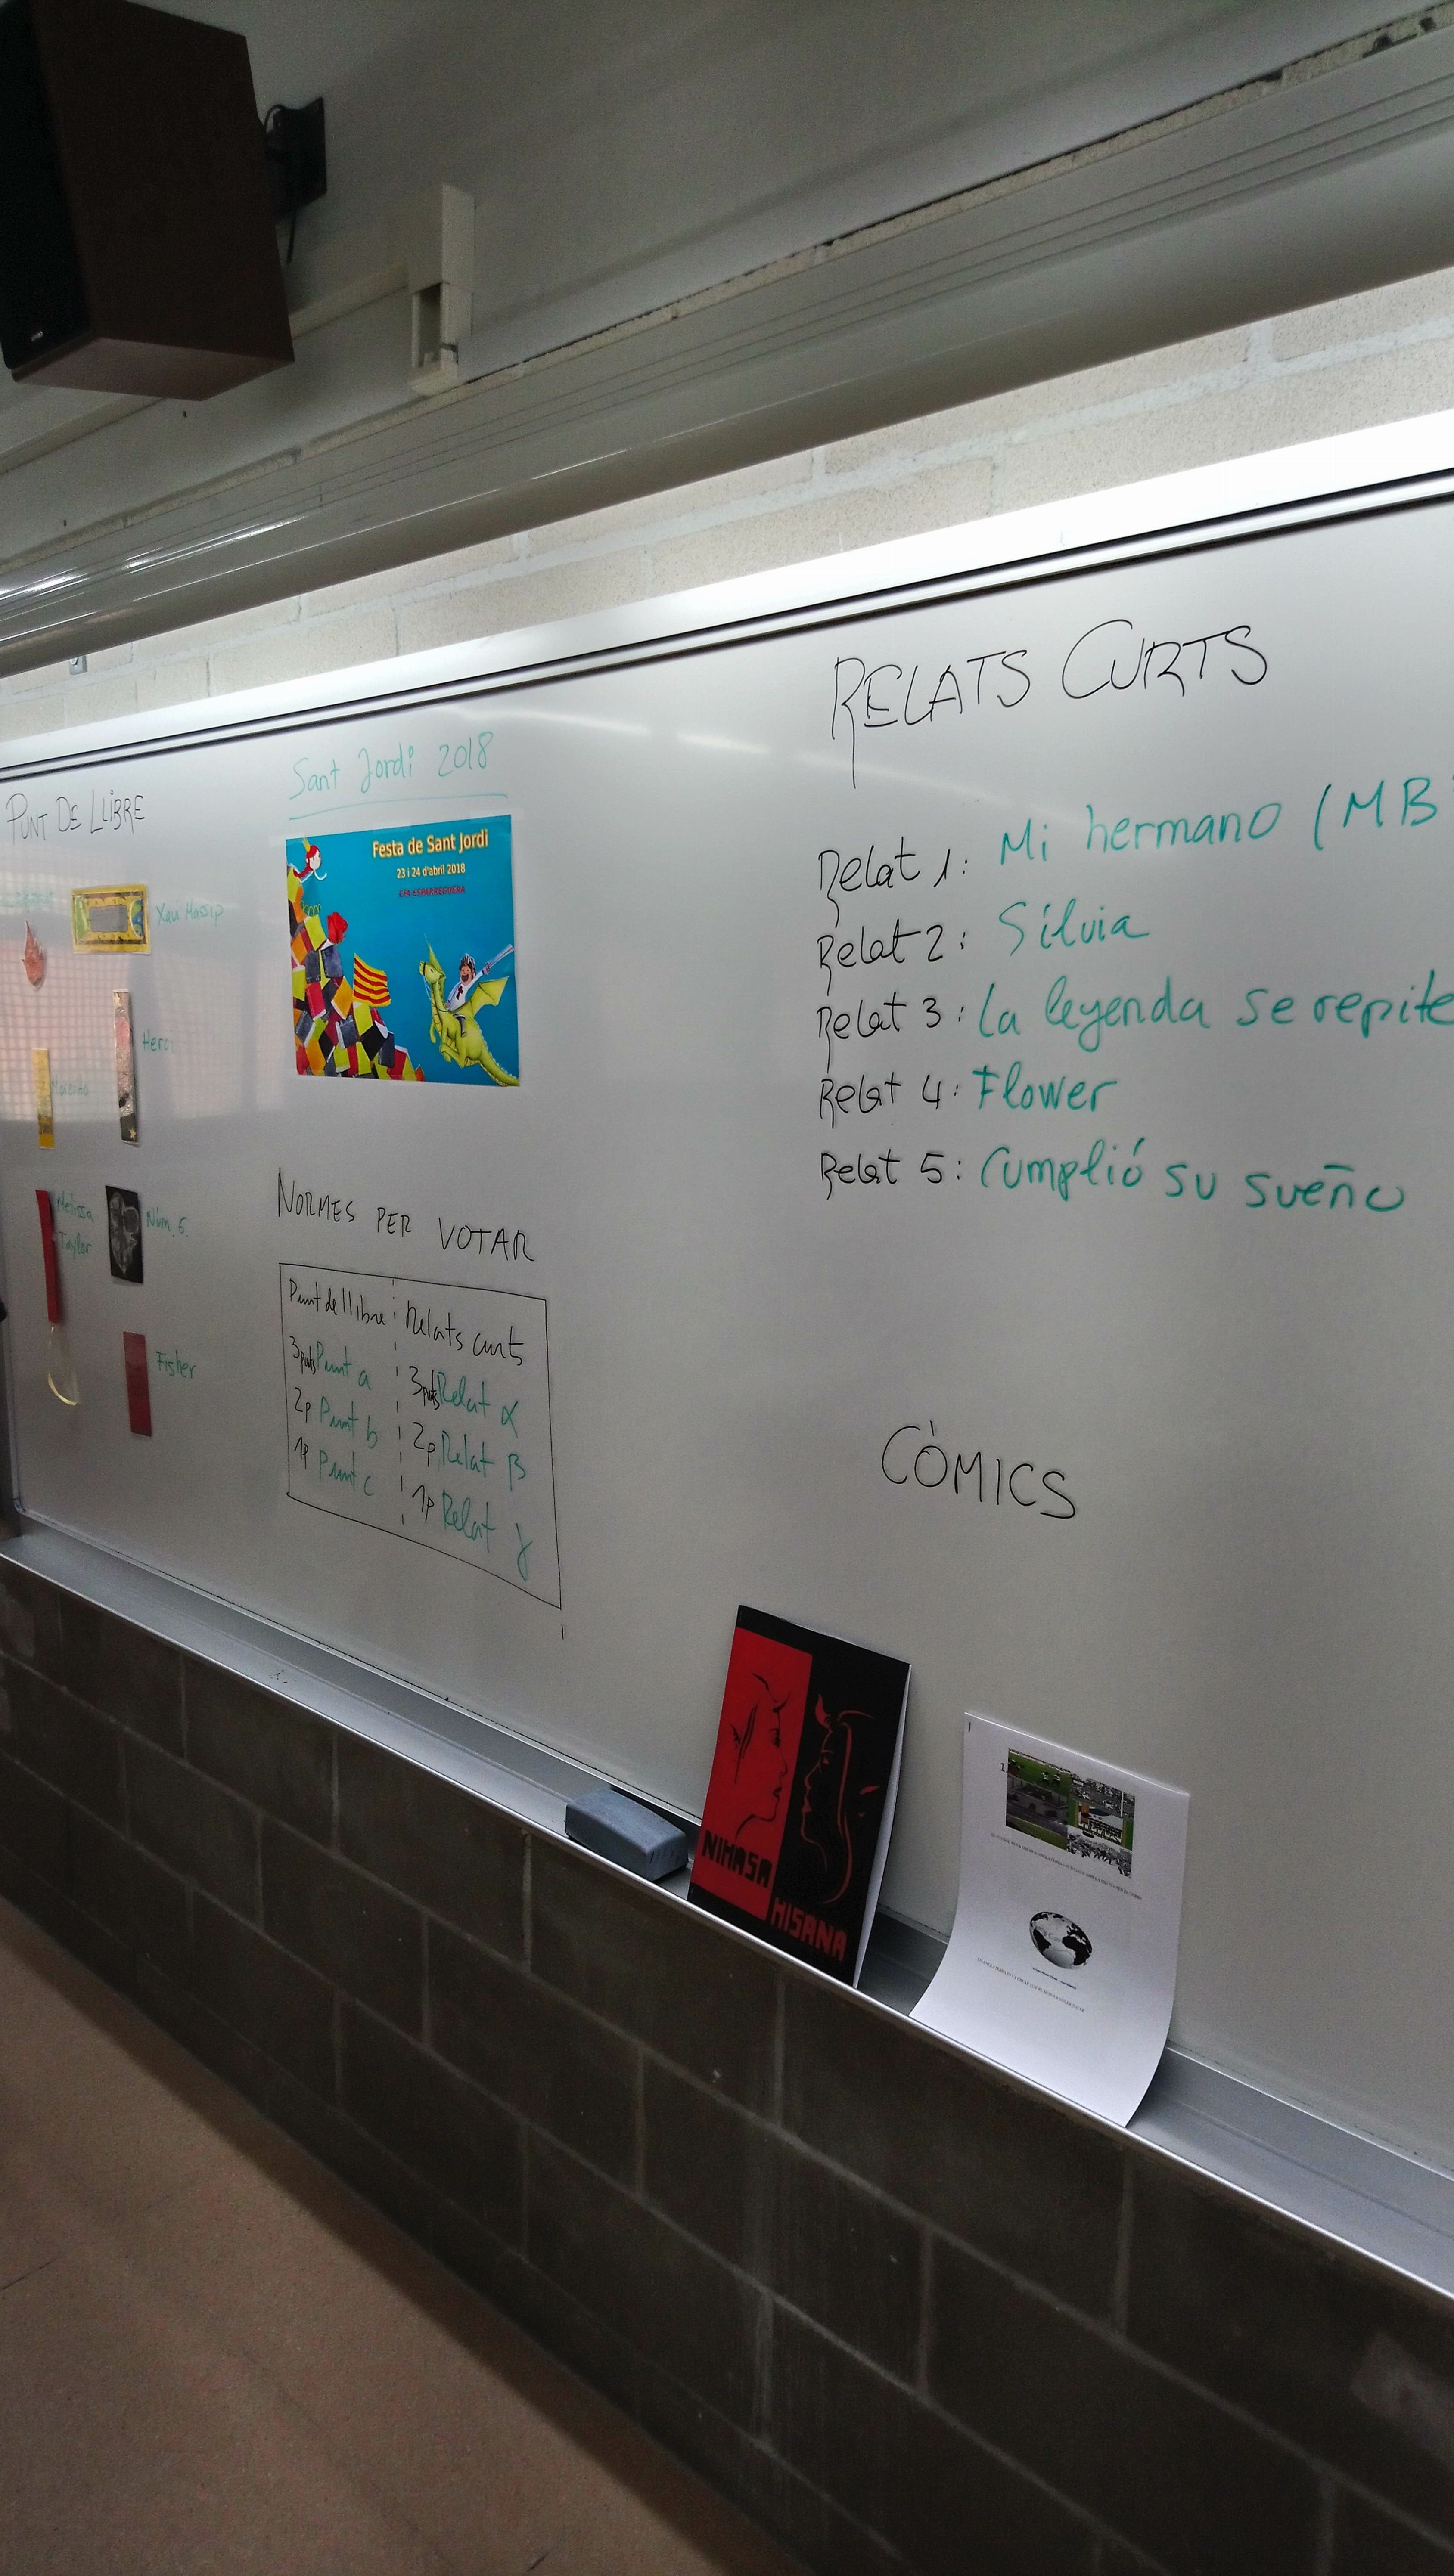 PUNT DE LLIBRE
Xavi Massip
Hero
Melissa
Taylor
Núm. 6
Fisher
Sant Jordi 2018
Festa de Sant Jordi
23 i 24 d'abril 2018
CFA ESPARREGUERA
NORMES PER VOTAR
Punt de llibre
3 punts Punt a
2p Punt b
1p Punt c
Relats curts
3 punts Relat α
2p Relat β
1p Relat γ
RELATS CURTS
Relat 1: Mi hermano (MB
Relat 2: Sílvia
Relat 3: La leyenda se repite
Relat 4: Flower
Relat 5: Cumplió su sueño
CÒMICS
NIMASA
MISANA
1.